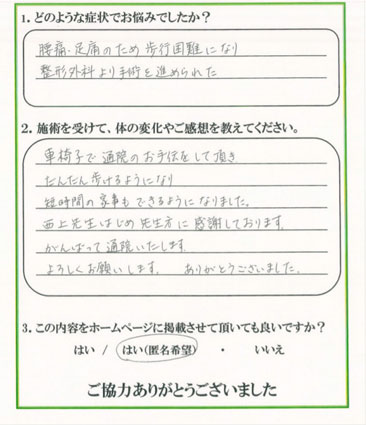 1. どのような症状でお悩みでしたか？
腰痛、足痛のため歩行困難になり
整形外科より手術を進められた
2. 施術を受けて、体の変化やご感想を教えてください。
車椅子で通院のお手伝をして頂き
だんだん歩けるようになり
短時間の家事もできるようになりました。
西上先生はじめ先生方に感謝しております。
がんばって通院いたします
よろしくお願いします。 ありがとうございました。
3. この内容をホームページに掲載させて頂いても良いですか？
はい / はい(匿名希望) ・ いいえ
ご協力ありがとうございました